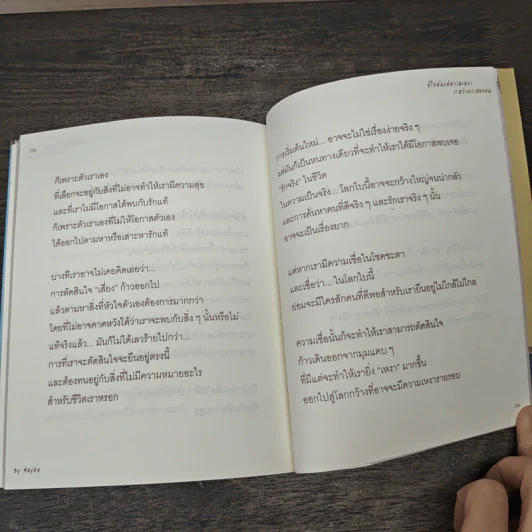 ก็เพราะตัวเราเอง
ที่เลือกจะอยู่กับสิ่งที่ไม่อาจทำให้เรามีความสุข
และที่เราไม่มีโอกาสได้พบกับรักแท้
ก็เพราะตัวเราเองที่ไม่ให้โอกาสตัวเอง
ได้ออกไปตามหาหรือเสาะหารักแท้
บางทีเราอาจไม่เคยคิดเลยว่า...
การตัดสินใจ "เสี่ยง" ก้าวออกไป
แล้วตามหาสิ่งที่หัวใจตัวเองต้องการมากกว่า
โดยที่ไม่อาจคาดหวังได้ว่าเราจะพบกับสิ่ง ๆ นั้นหรือไม่
แท้จริงแล้ว... มันก็ไม่ได้เลวร้ายไปกว่า...
การที่เราจะตัดสินใจจะยืนอยู่ตรงนี้
และต้องทนอยู่กับสิ่งที่ไม่มีความหมายอะไร
สำหรับชีวิตเราหรอก
By Maybe
การเริ่มต้นใหม่... อาจจะไม่ใช่เรื่องง่ายจริง ๆ
แต่มันก็เป็นหนทางเดียวที่จะทำให้เราได้มีโอกาสพบเจอ
"รักจริง" ในชีวิต
ในความเป็นจริง... โลกใบนี้อาจจะกว้างใหญ่จนน่ากลัว
และการค้นหาคนที่ดีจริง ๆ และรักเราจริง ๆ นั้น
อาจจะเป็นเรื่องยาก
แต่หากเรามีความเชื่อในโชคชะตา
และเชื่อว่า... ในโลกใบนี้
ย่อมจะมีใครสักคนที่ดีพอสำหรับเรายืนอยู่ไม่ใกล้ไม่ไกล
ความเชื่อนั้นก็จะทำให้เราสามารถตัดสินใจ
ก้าวเดินออกจากมุมแคบ ๆ
ที่มีแต่จะทำให้เรายิ่ง "เหงา" มากขึ้น
ออกไปสู่โลกกว้างที่อาจจะมีความเหงารายรอบ